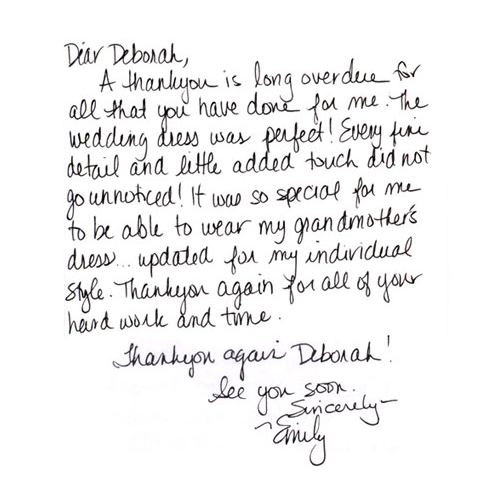 Dear Deborah,
A thankyou is long overdue for
all that you have done for me. The
wedding dress was perfect! Every fine
detail and little added touch did not
go unnoticed! It was so special for me
to be able to wear my grandmother's
dress... updated for my individual
style. Thankyou again for all of your
hard work and time.
Thankyou again Deborah!
See you soon.
Sincerely-
~Emily